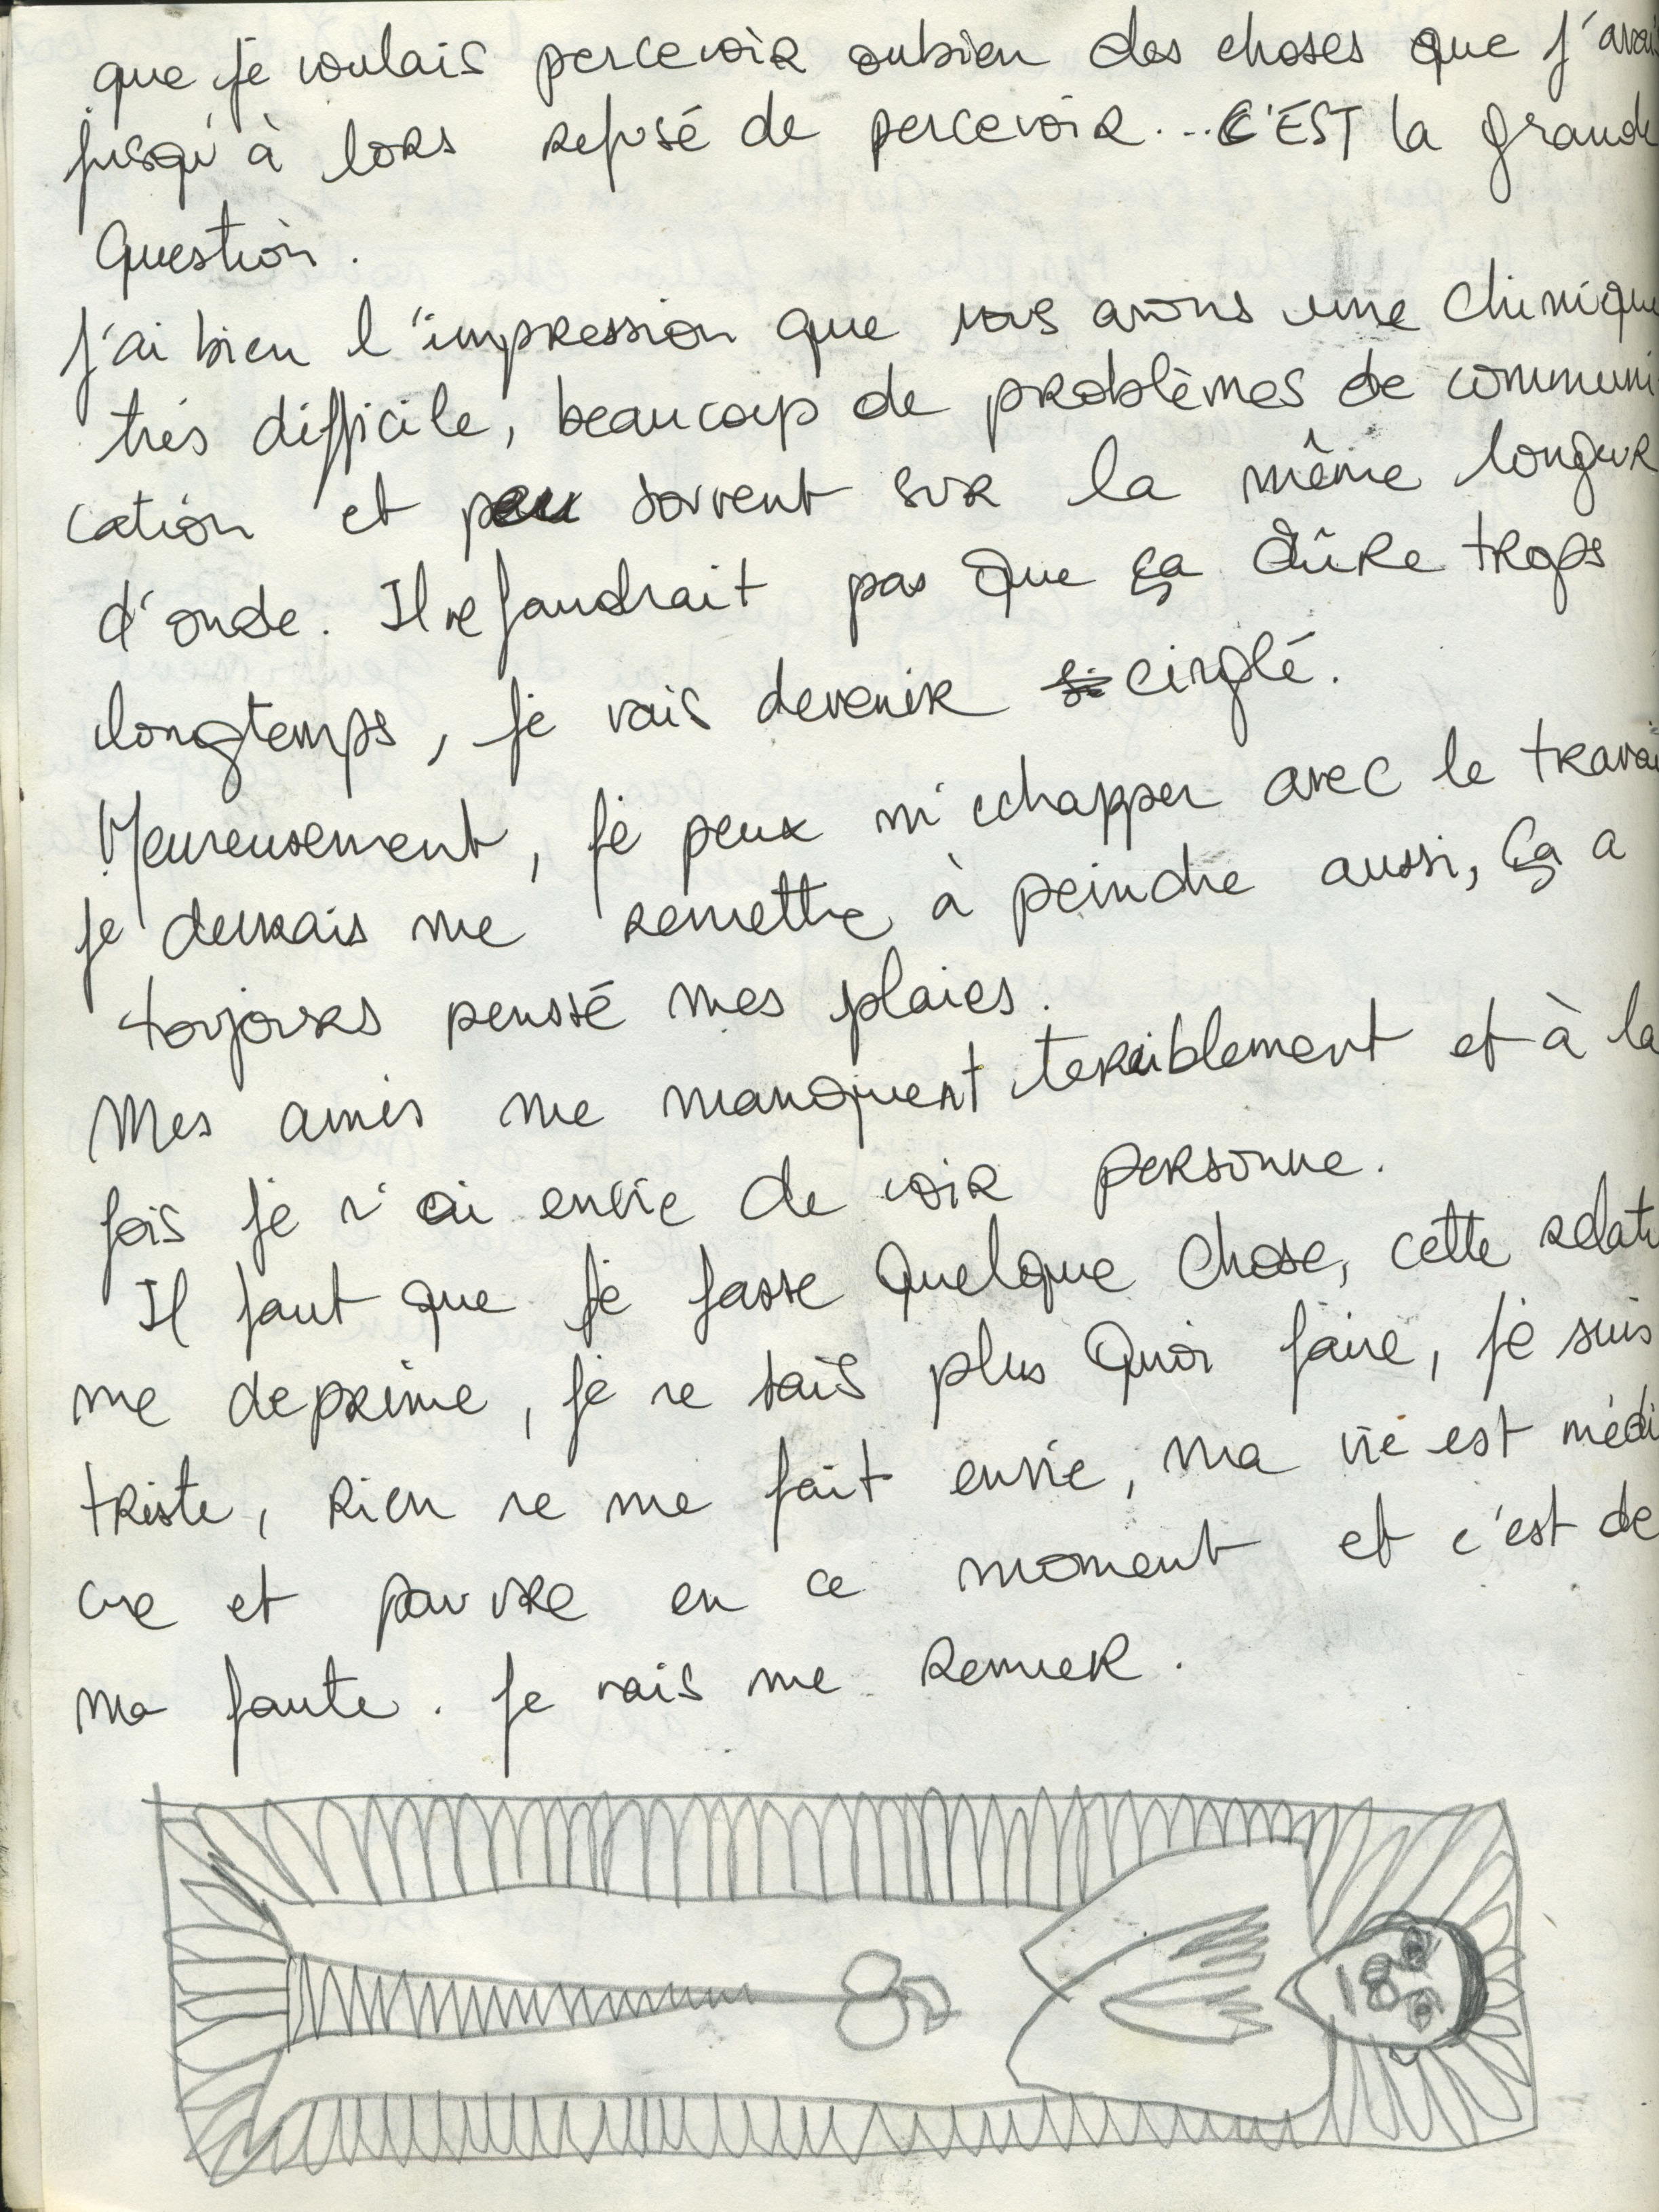 que je voulais percevoir oubien des choses que j'avais
jusqu'à lors refusé de percevoir... C'EST la grande
Question.
J'ai bien l'impression que nous avons une chimique
très difficile, beaucoup de problèmes de communi
cation et peu souvent sur la même longeur
d'onde. Il ne faudrait pas que ça dûre trops
longtemps, je vais devenir cinglé.
Heureusement, je peux m'echapper avec le travai
je devrais me remettre à peindre aussi, ça a
toujours penssé mes plaies.
Mes amis me manquent terriblement et à la
fois je n'ai envie de voir personne.
Il faut que je fasse quelque chose, cette relati
me deprime, je ne sais plus quoi faire, je suis
triste, rien ne me fait envie, ma vie est médi
cre et pauvre en ce moment et c'est de
ma faute. Je vais me remuer.